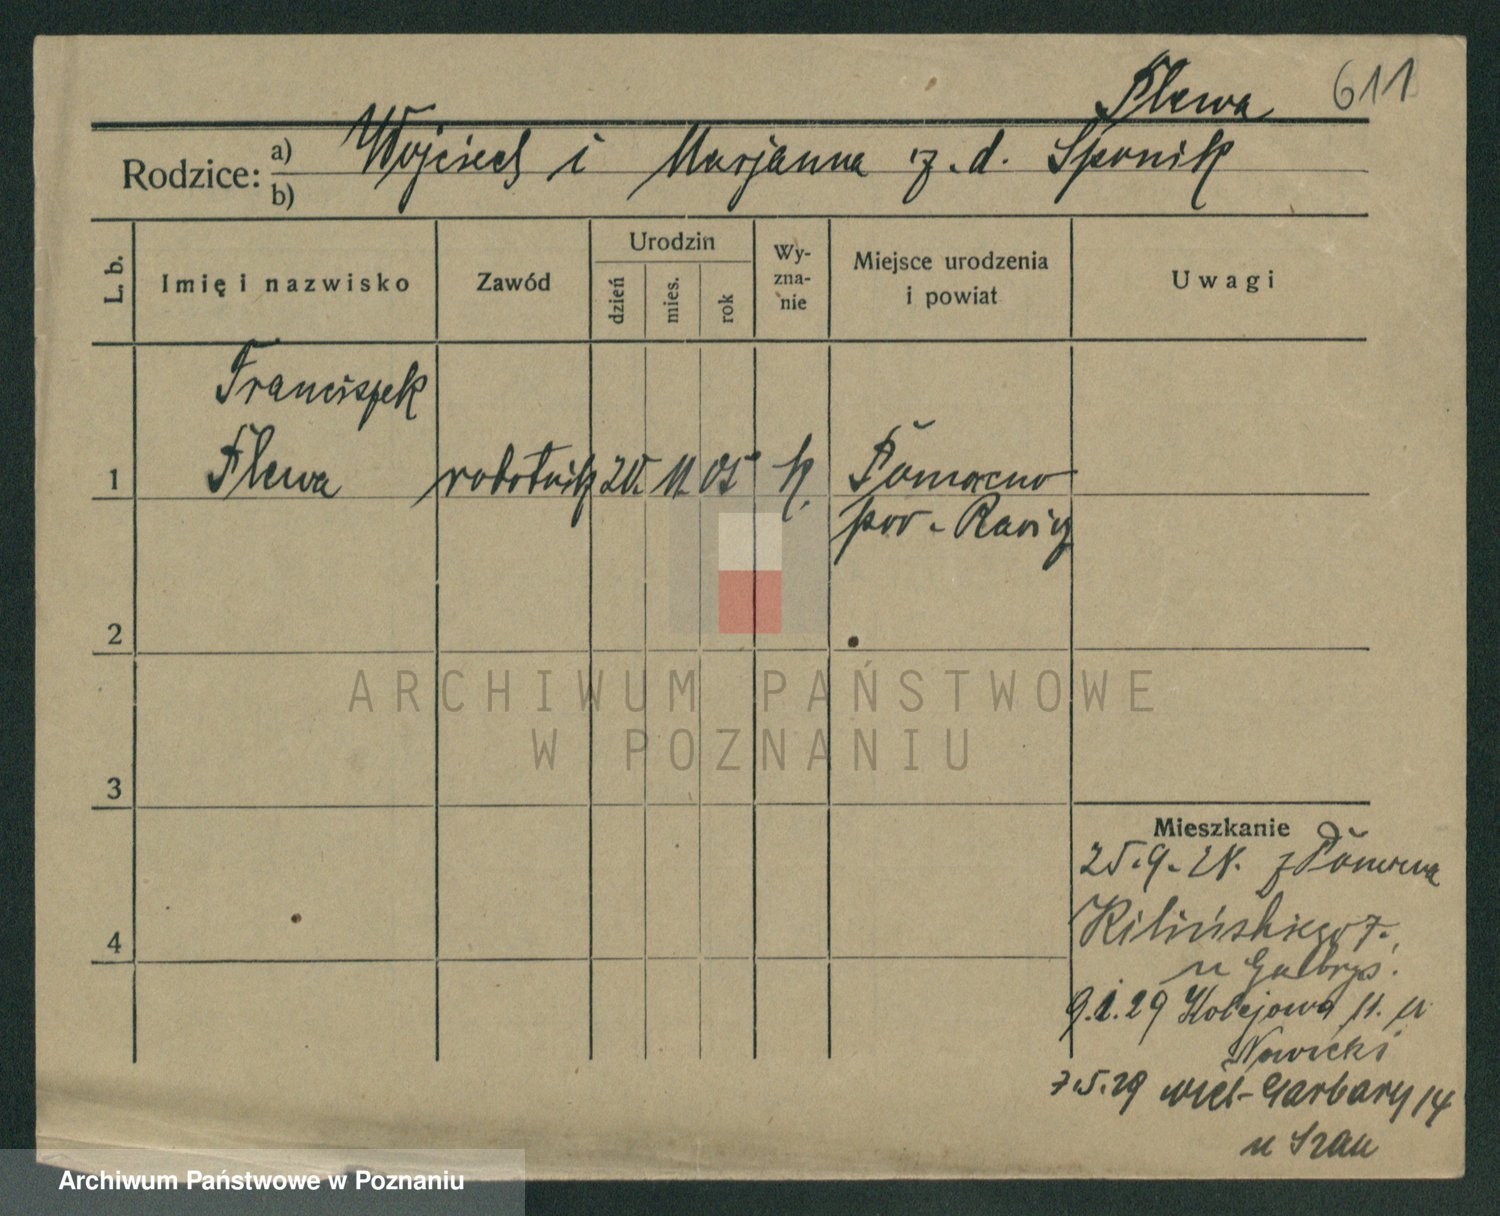 Plewa 611
Rodzice: a) b) Wojciech i Marjanna z.d. Sponik
L. b.
Imię i nazwisko
Zawód
Urodzin
dzień
mies.
rok
Wy-
zna-
nie
Miejsce urodzenia
i powiat
Uwagi
Franciszek
1 Plewa robotnik 20. 11. 05 k.
pow. Rawicz
2
ARCHIWUM PAŃSTWOWE
W POZNANIU
3
Mieszkanie
25.9.28. z
4 Kilińskiego 7.
u Galbryś.
9.1.29 Kolejowa 11. u
Nowicki
7.5.29 Wiel-Garbary 14
u
Archiwum Państwowe w Poznaniu